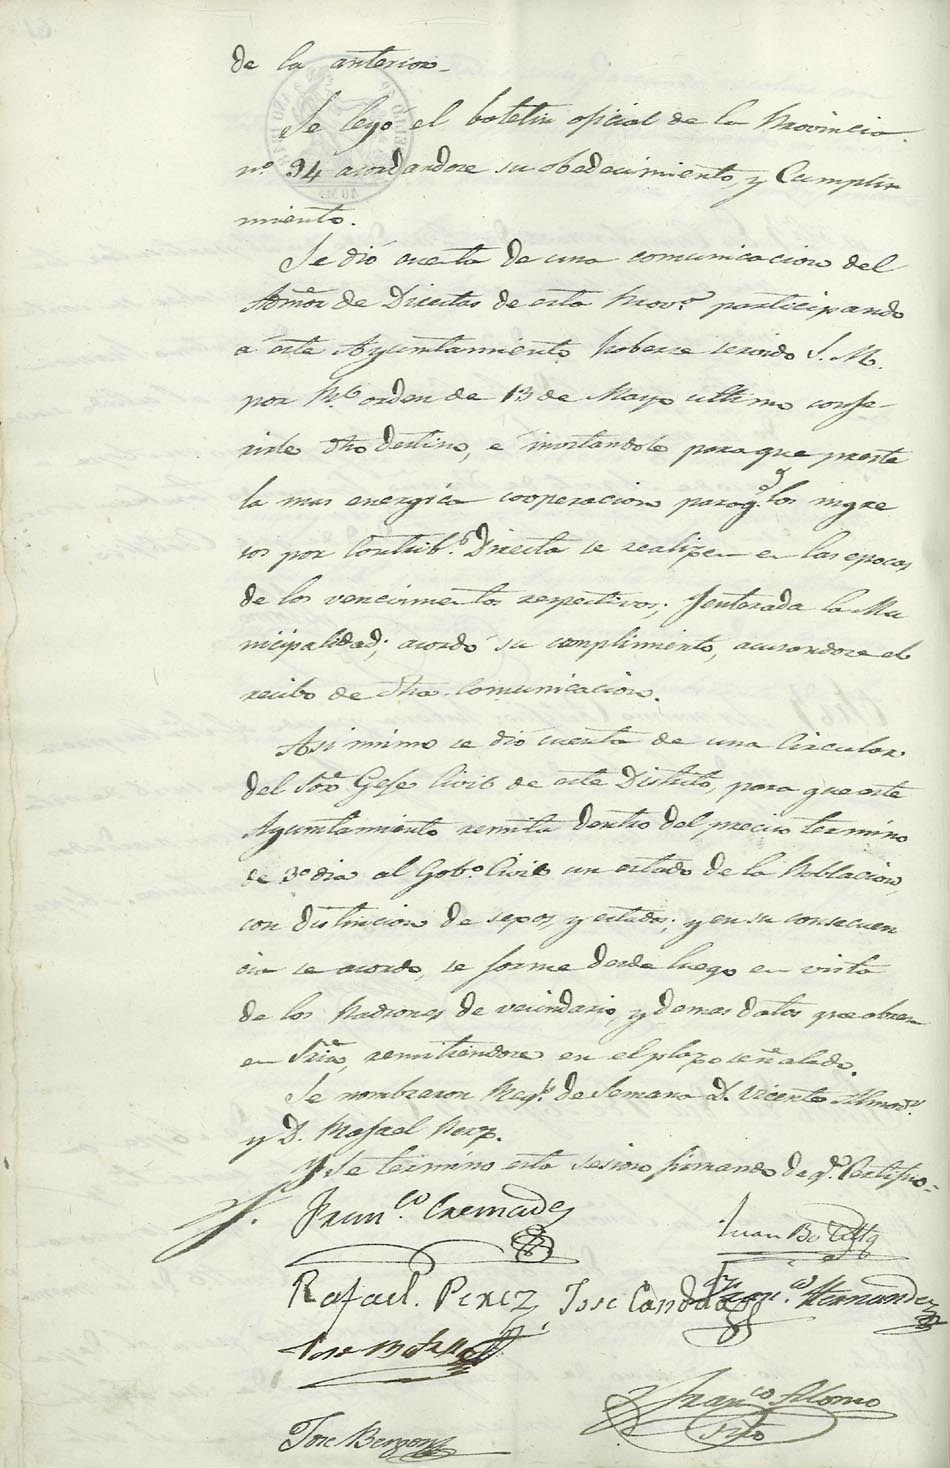 de la anterior.
Se leyó el boletin oficial de la Provincia
nº 94 acordandose su obedecimiento, y Cumpli
miento.
Se dió cuenta de una comunicacion del
Admor de Directas de esta Provª participando
a este Ayuntamiento haberse servido S. M.
por Rl orden de 13 de Mayo ultimo confe-
rirle dho destino, é invitandole para que preste
la mas energica cooperacion para q.e los ingre
sos por Contrib.s Directa se realizen en las epocas
de los vencimientos respectivos; y enterada la Mu
nicipalidad; acordó su complimiento, acusandose el
recibo de dha comunicacion.
Asi mimo se dió cuenta de una Circular
del Sor Gefe Civil de este Distrito, para que este
Ayuntamiento remita dentro del preciso termino
de 3º dia al Gobº Civil un estado de la Poblacion,
con distincion de sexos, y estados; y en su consecuen
cia se acordo, se forme desde luego en vista
de los Padrones de vecindario, y demas datos que obran
en Sria, remitiendose en el plazo señalado.
Se nombraron Reg.s de Semana D. Vicente Almod.r
y D. Rafael Perez.
Y se terminó esta sesion firmando de q.e Certifico=
Fran.co Cremades
Juan
Rafael Perez, Jose Candela Fran.co Hernandez
Jose
Franco Alonso
Jose